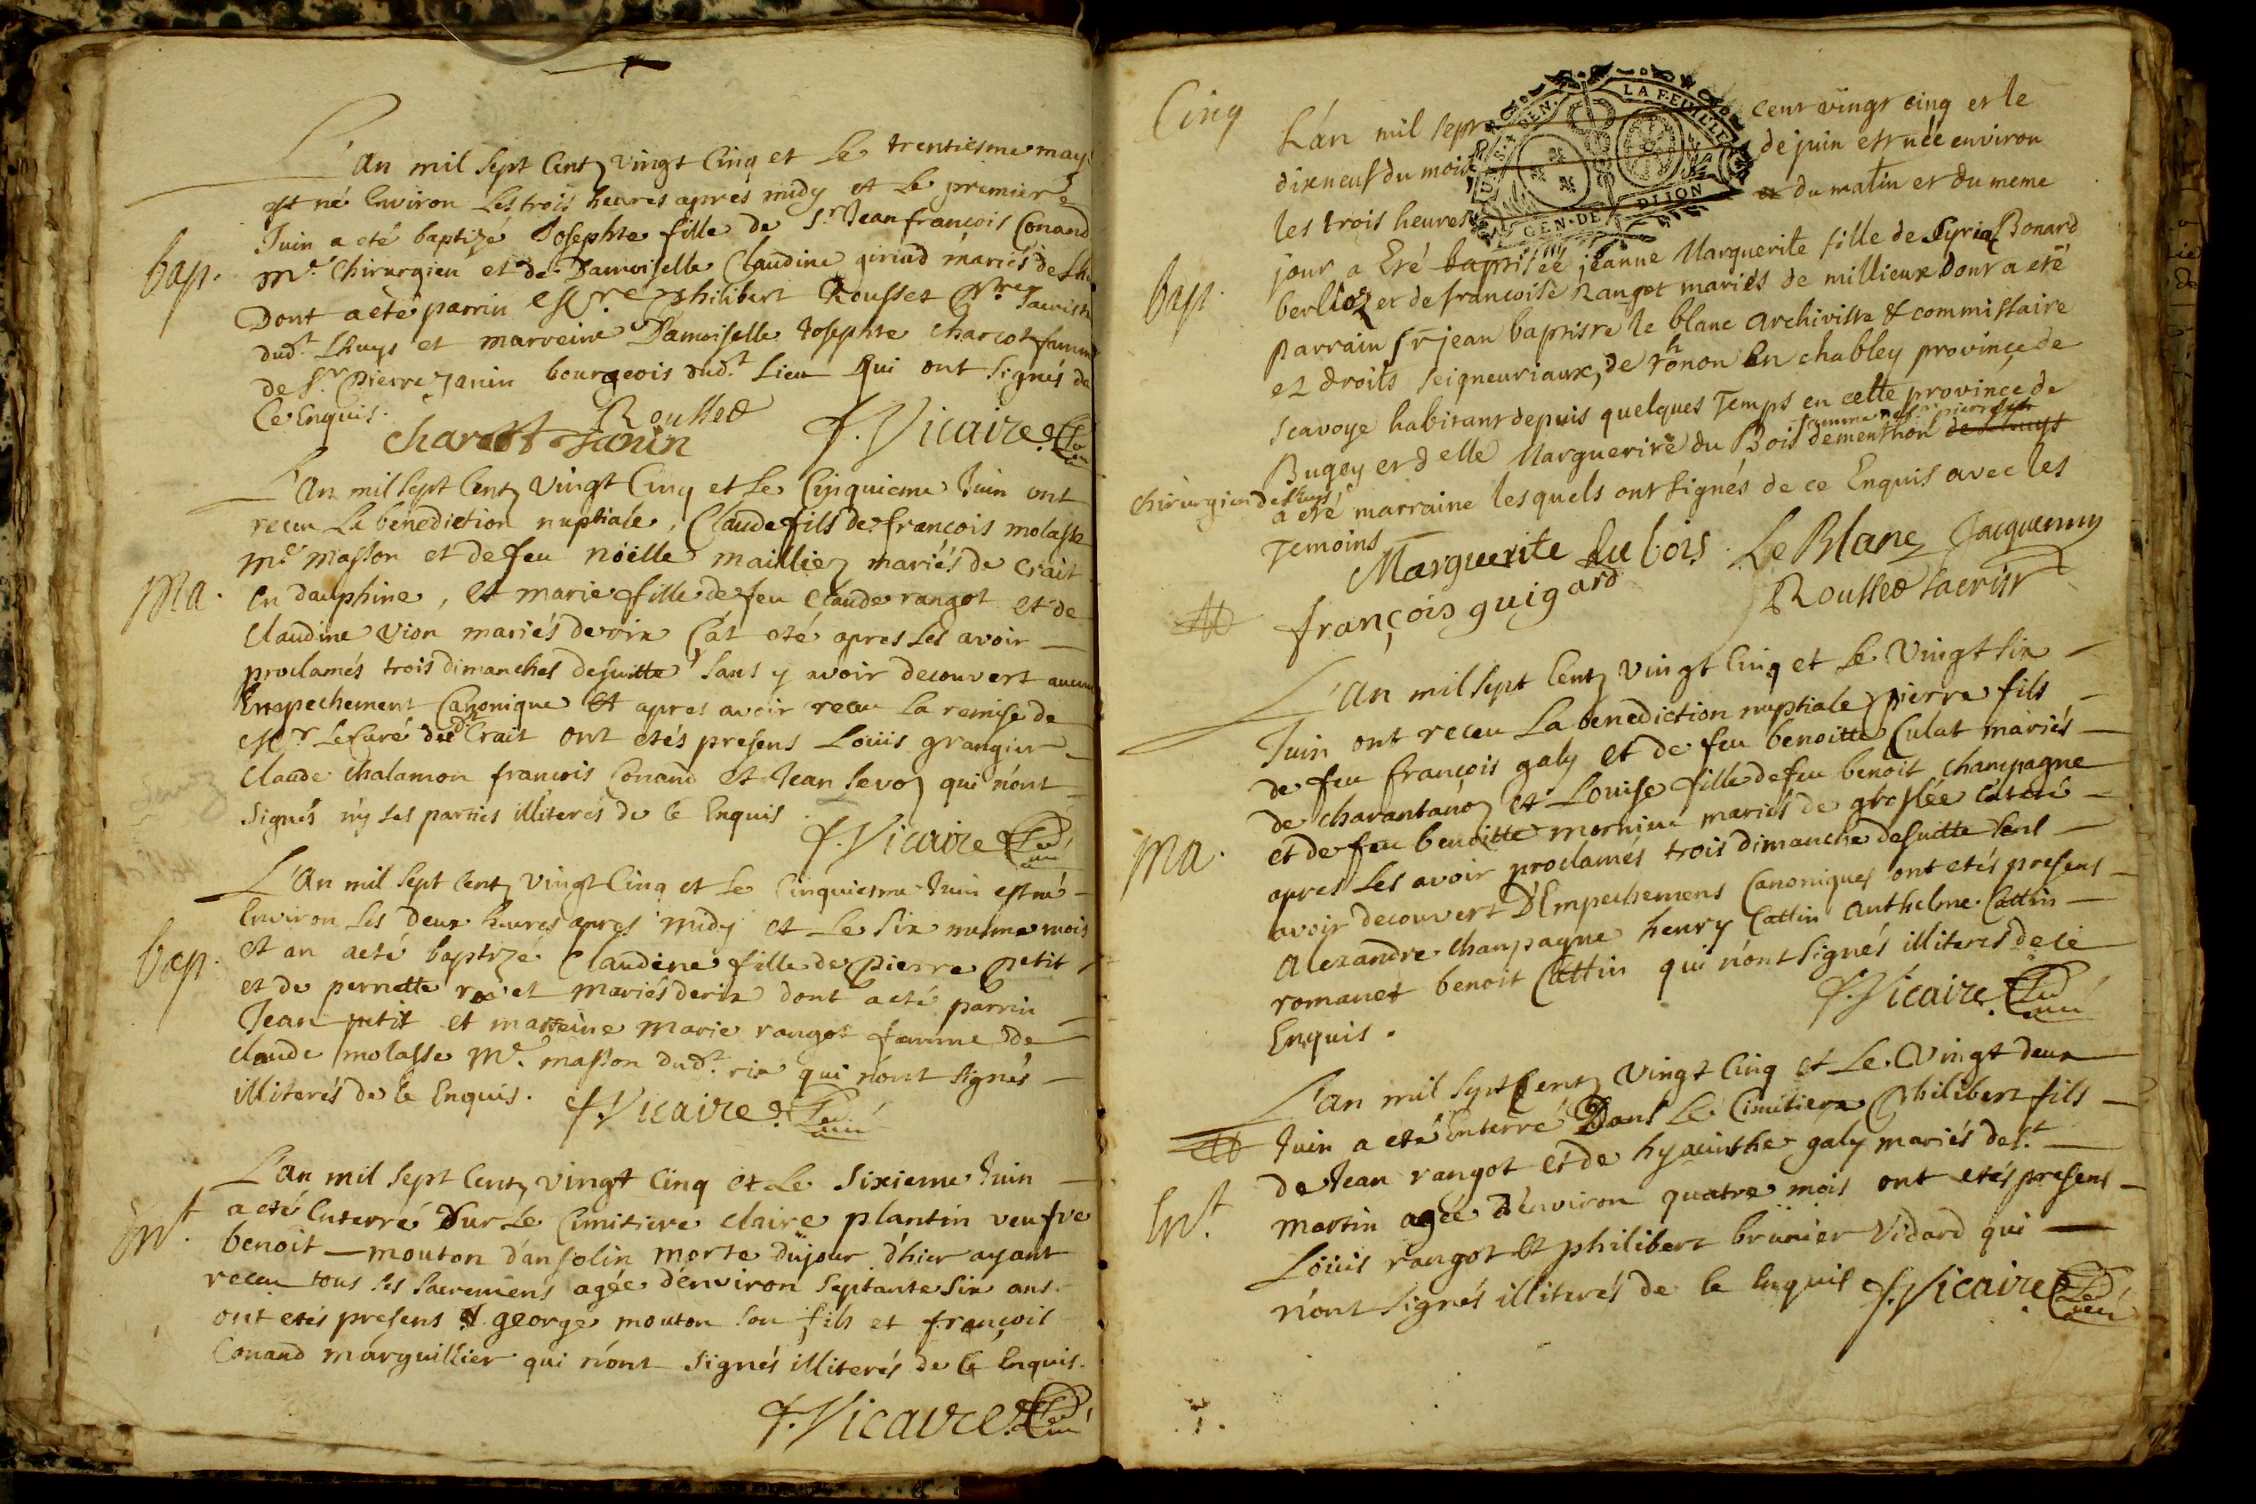 L'an mil sept Cent vingt Cinq et Le trentiesme may
est né Environ Les trois heures apres midy et Le premier
Juin a eté baptizé Josephte fille de Sr. Jean françois Conand
bap. Me. Chirurgien et de Damoiselle Claudine giriud mariés de Lhu
Dont a eté parrin Philibert Rousset
dud.t Lhuys et marreine Damoiselle Josephte Charcot famme
de Sr. Pierre Janin bourgeois dud.t Lieu Qui ont signés de
Ce Enquis.
Charcot Janin Rousset f. Vicaire
L'an mil sept Cent vingt Cinq et Le Cinquieme Juin ont
receu La benediction nuptiale, Claude fils de françois molasse
Me masson et de feu noëlle mailliez mariés de Crait
Ma. En dauphine, et marie fille de feu Claude rangot et de
Claudine vion mariés de rix Cát oté apres Les avoir
proclamés trois dimanches desuitte sans y avoir decouvert aucun
Empechement Canonique et apres avoir receu La remise de
Mr. Le Curé dud.t Crait ont etés presens Loüis grangier
Claude Chalamon francois Conand et Jean Sevoz qui n'ont
signés n'y Les parties illiterés de Ce Enquis
f. Vicaire
L'an mil sept Cent vingt Cinq et Le Cinquiesme Juin est né
Environ Les deux heures apres midy et Le Six mesme mois
bap. et an a eté baptizé Claudine fille de Pierre Petit
et de pernette mariés de rix dont a eté parrin
Jean petit et marreine Marie rangot famme de
Claude molasse Me. masson dud.t rix qui n'ont signés
illiterés de Ce Enquis. f. Vicaire
L'an mil sept Cent vingt Cinq et Le Sixieme Juin
a eté Enterré Dur Le Cimitiere Claire plantin veufve
Ent. benoit mouton d'ansolin morte dujour d'hier ayant
receu tous les sacremens agée d'environ septante six ans.
ont etés presens george mouton son fils et françois
Conand marguillier qui n'ont signés illiterés de Ce Enquis.
f. Vicaire
Cinq
L'an mil sept cent vingt cinq et le
dixneuf du mois de juin est née environ
les trois heures du matin et du meme
jour a Eté baptisée jeanne Marguerite fille de Syriaq Bonard
bap. berlioz et de francoise Rangot mariés de millieux dont a eté
parrain Sr jean baptiste le blanc Archiviste & commissaire
et droits seigneuriaux, de Thonon En chabley province de
scavoye habitant depuis quelques Temps en cette province de
femme de Sr. pierre
Bugey et d elle Marguerite du Bois dementhon de Lhuys
chirurgien de Lhuys
a eté marraine lesquels ont signés de ce Enquis avec les
Temoins
Marguerite du bois Le Blanc Jacquemin
françois guigard Rousset sacrist
L'an mil sept Cent vingt Cinq et Le Vingt six
Juin ont receu La benediction nuptiale Pierre fils
de feu françois galy et de feu benoitte Culat mariés
de charantanoz et Louise fille de feu benoit Champagne
et de feu benoitte mornieu mariés de groslée
Ma. apres Les avoir proclamés trois dimanche desuitte sens
avoir decouvert D'Empechemens Canoniques ont etés presens
Alexandre Champagne henry Cattin Anthelme Cattin
romanet benoit Cattin qui n'ont signés illiteres de Ce
Enquis. f. Vicaire
L'an mil sept Cent vingt Cinq et Le Vingt deux
Juin a eté Enterré Dans Le Cimitiere Philibert fils
de Jean rangot et de hyacinthe galy mariés de St
Ent. martin agée d'Environ quatre mois ont etés presens
Loüis rangot et philibert brunier Vidard qui
n'ont signés illiterés de Ce Enquis f. Vicaire
GEN. DE DIJON
LA FEUILLE